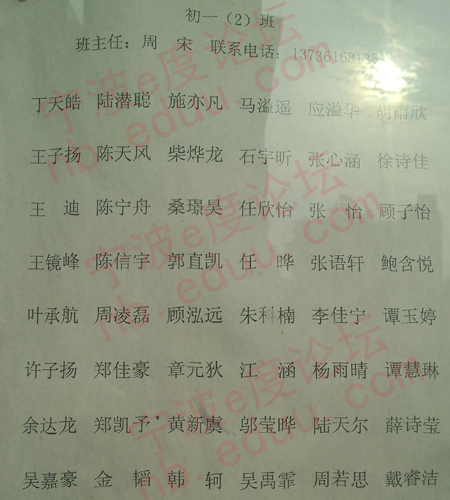 初一（2）班
班主任：周 宋 联系电话：
丁天皓 陆潜聪 施亦凡 马溢遥 应溢华 胡雨欣
王子扬 陈天风 柴烨龙 石宇昕 张心涵 徐诗佳
王 迪 陈宁舟 桑璟昊 任欣怡 张 怡 顾子怡
王镜峰 陈信宇 郭直凯 任 晔 张语轩 鲍含悦
叶承航 周凌磊 顾泓远 朱科楠 李佳宁 谭玉婷
许子扬 郑佳豪 章元狄 江 涵 杨雨晴 谭慧琳
余达龙 郑凯予 黄新虞 邬莹晔 陆天尔 薛诗莹
吴嘉豪 金 韬 韩 轲 吴禹霏 周若思 戴睿洁
宁波e度论坛
nb.eduu.com
宁波e度论坛
nb.eduu.com
宁波e度论坛
nb.eduu.com